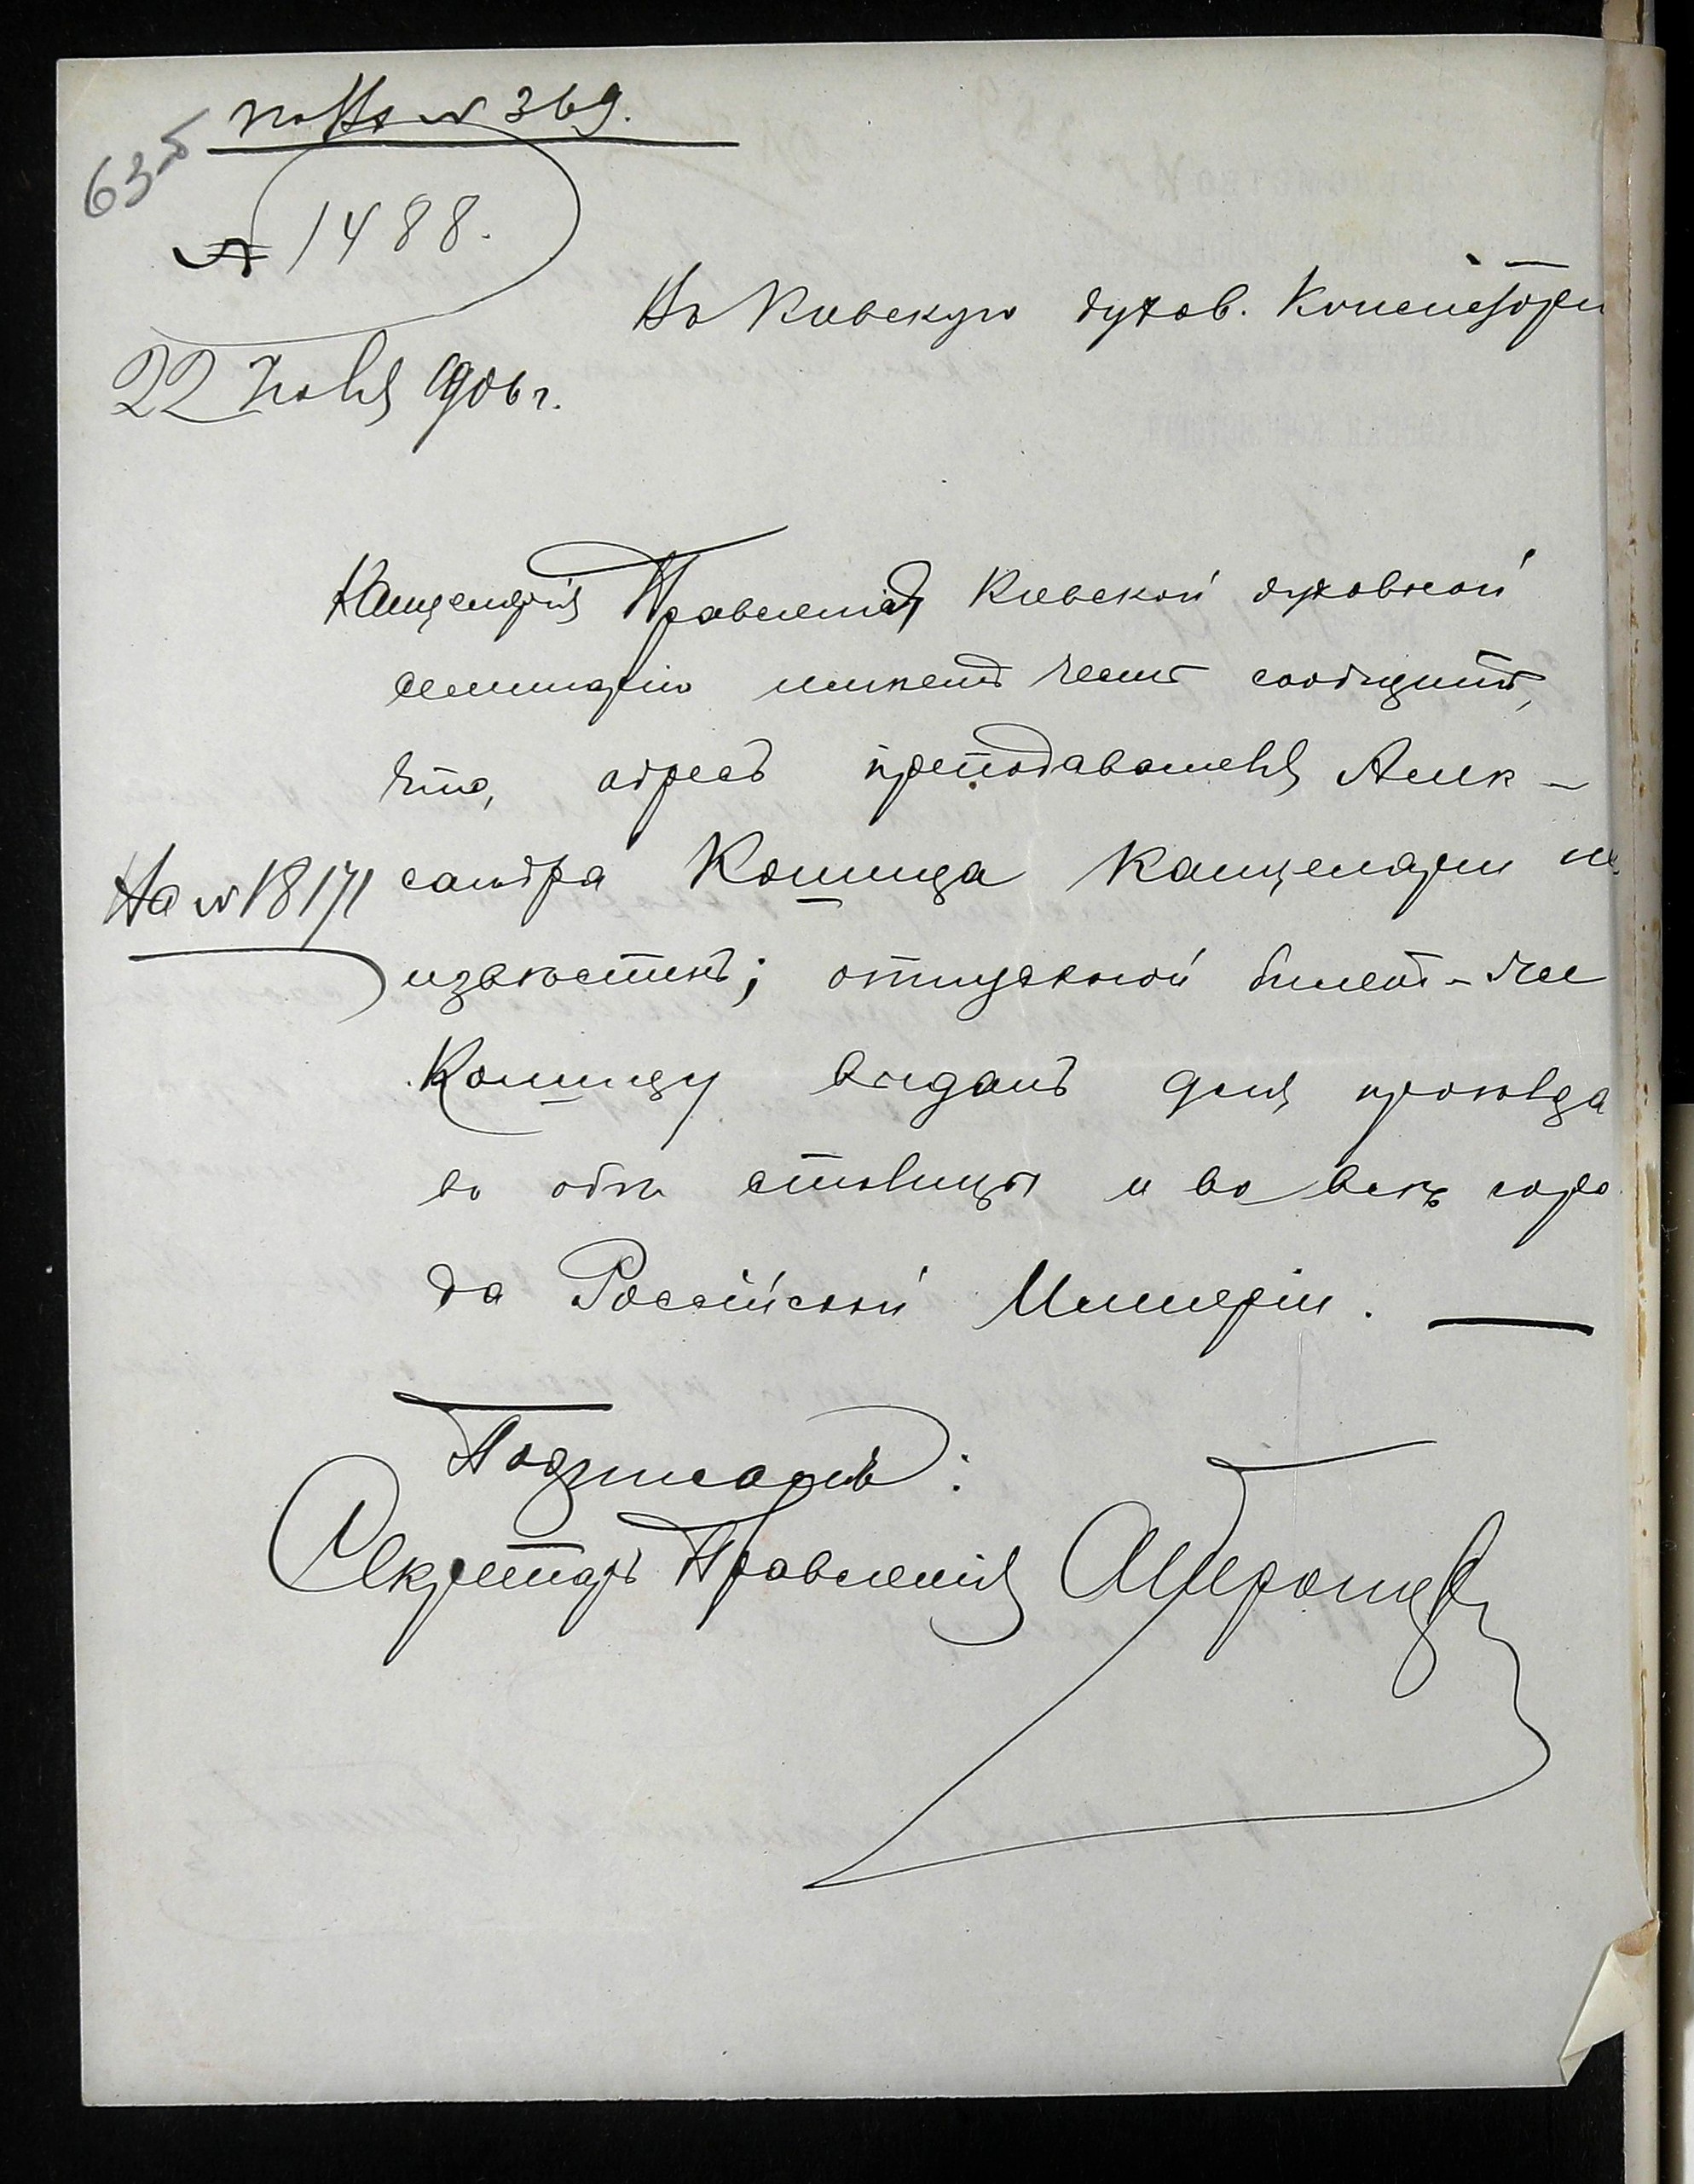 по Вх № 369.
63 б
№ 1488.
Въ Киевскую духов. Консисторі
22 Іюля 1906 г.
Канцелярія Правленія Киевской духовной
семинаріи имѣетъ честь сообщить,
что, адресъ преподавателя Алек-
сандра Кошица Канцеляріи не
На № 18171
извѣстенъ; отпускной билетъ же
Кошицу выданъ для проѣзда
во обѣ столицы и во всѣ горо
да Россійской Имперіи.
Подписалъ:
Секретарь Правленія